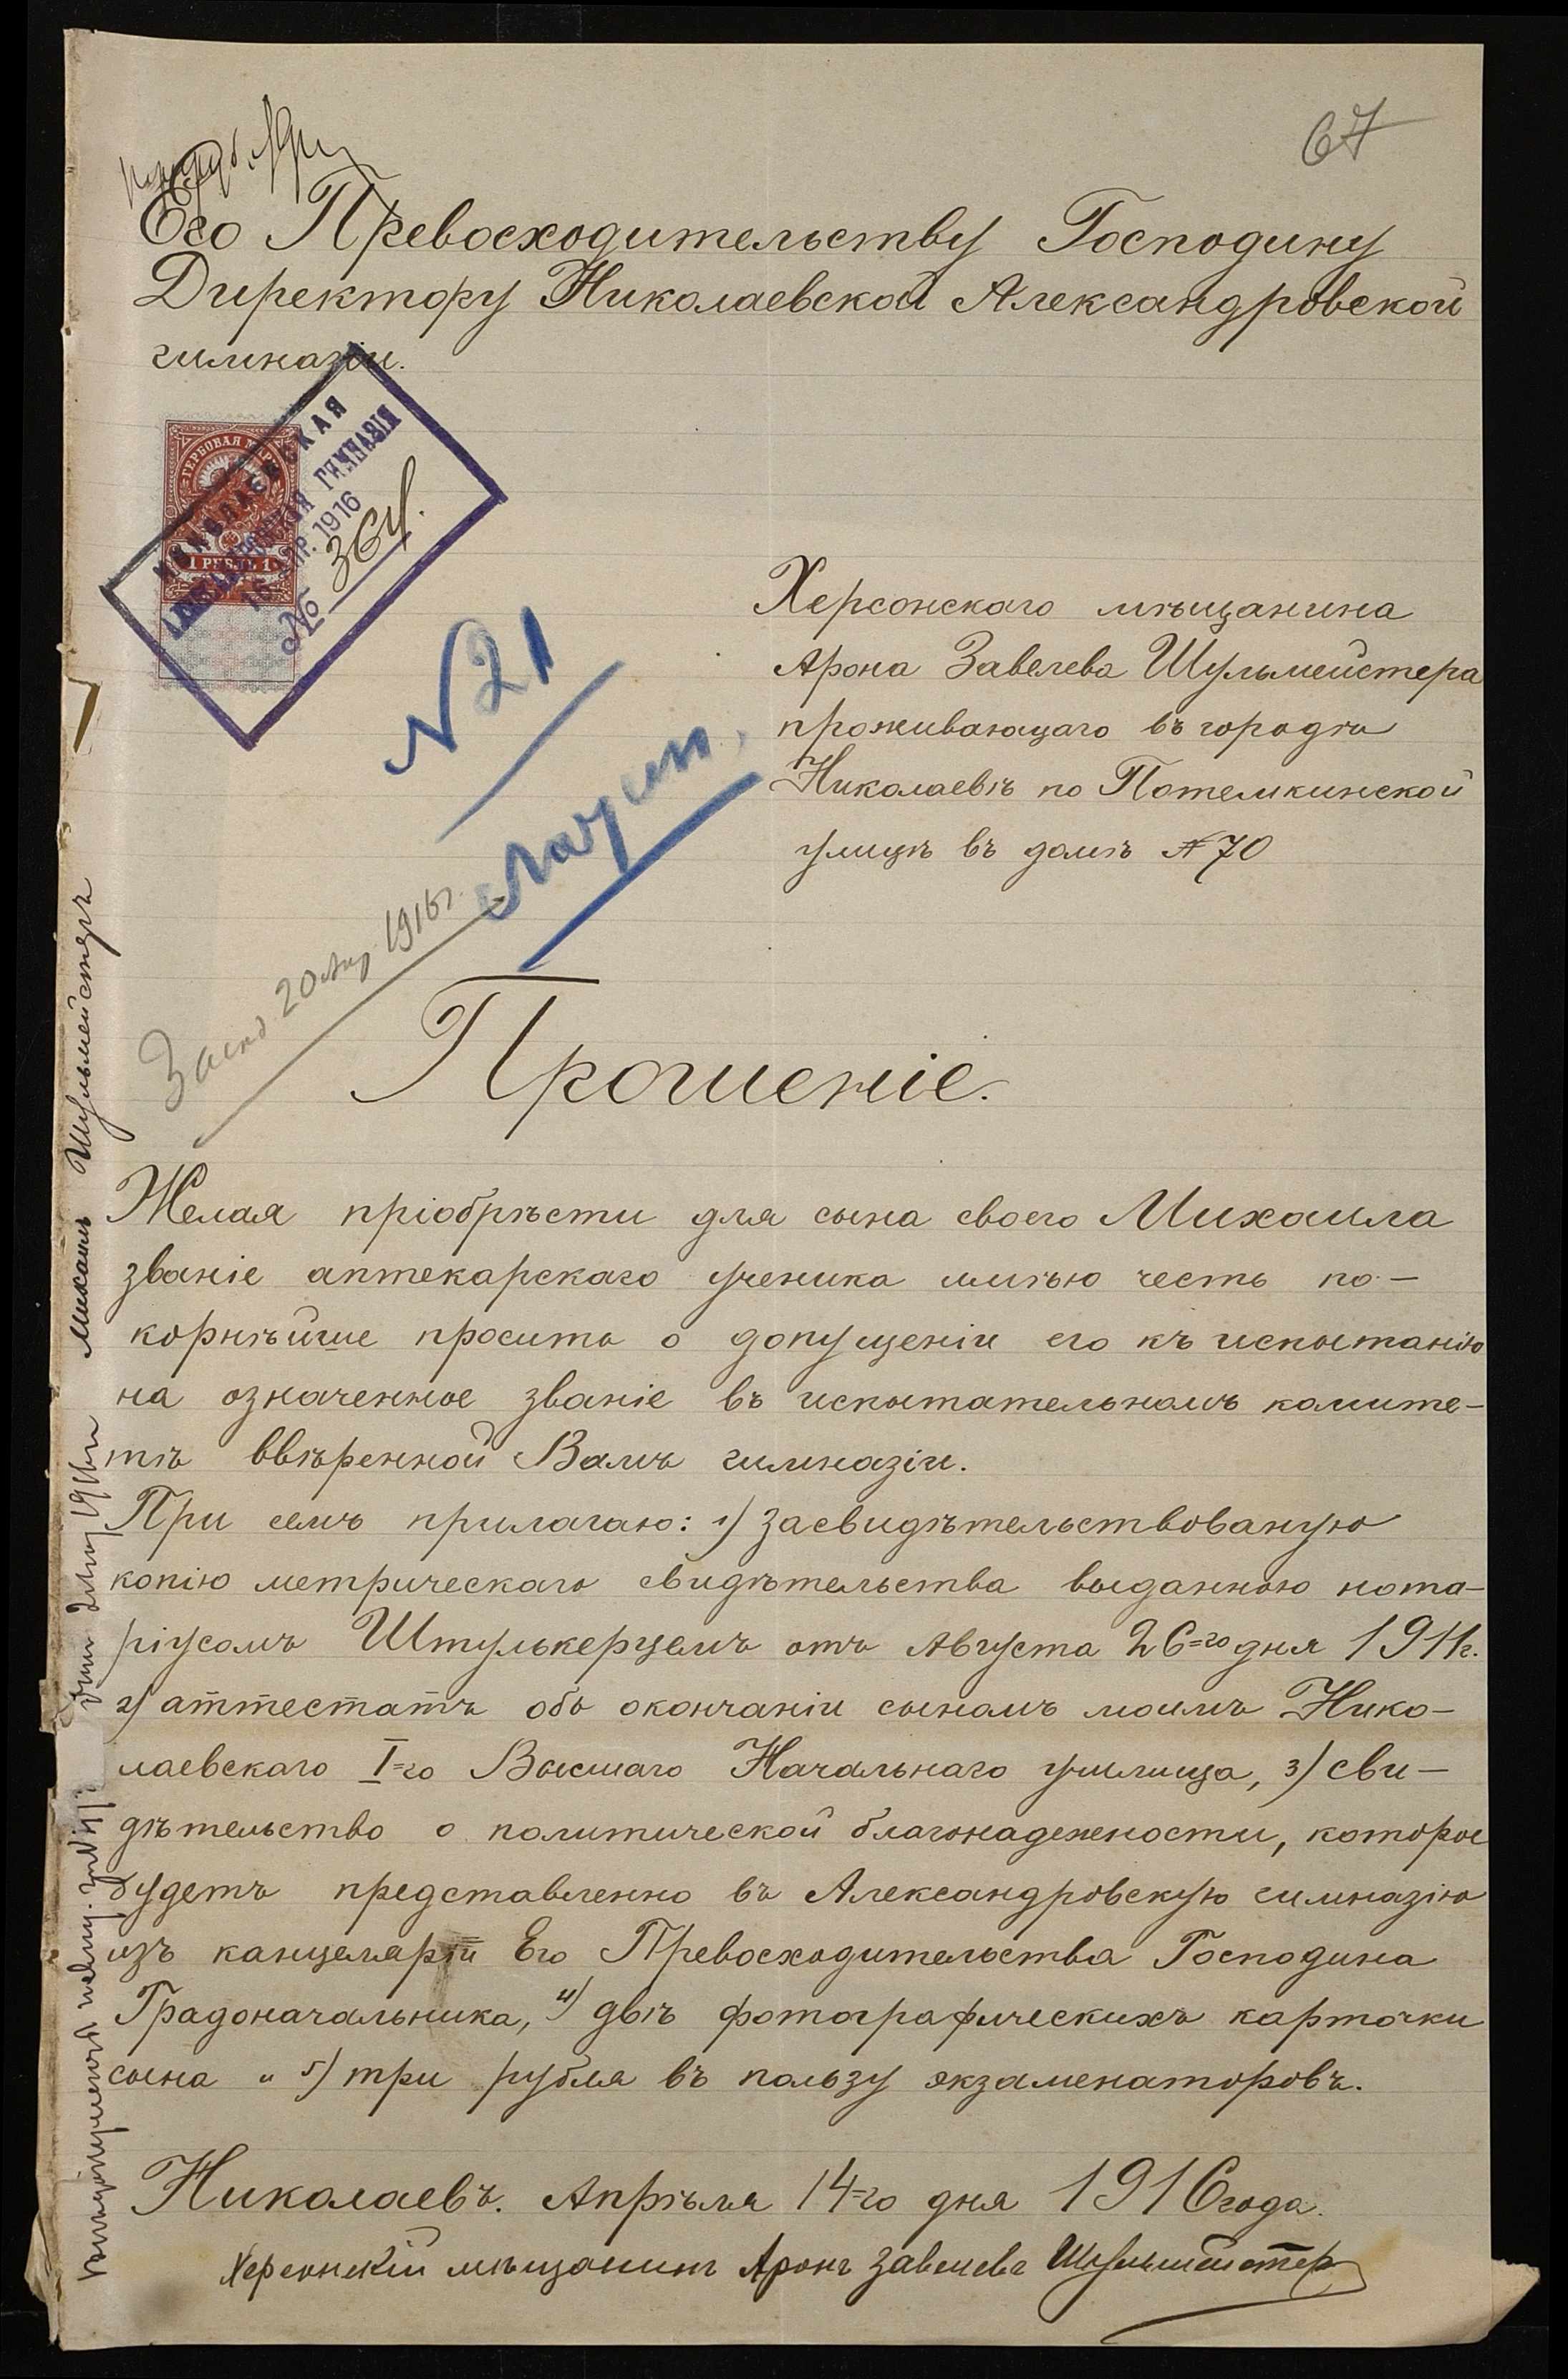 67
Его Превосходительству Господину
Директору Николаевской Александровской
гимназіи.
ГЕРБОВАЯ МАРКА
1 РУБЛЬ 1
НИКОЛАЕВСКАЯ
АЛЕКСАНДРОВСКАЯ ГИМНАЗІЯ
15 АПР. 1916
№ 364.
Херсонскаго мѣщанина
Арона Завелева Шульмейстера
проживающаго въ городѣ
Николаевѣ по Потемкинской
улицѣ въ домѣ № 70
N 21
Латин.
20 Апр. 1916 г.
Прошеніе.
Желая пріобрѣсти для сына своего Михаила
званіе аптекарскаго ученика имѣю честь по-
корнѣйше просить о допущеніи его къ испытанію
на означенное званіе въ испытательномъ комите-
тѣ ввѣренной Вамъ гимназіи.
При семъ прилагаю: 1) засвидѣтельствованую
копію метрическаго свидѣтельства выданною нота-
ріусомъ Штулькерцемъ отъ Августа 26=го дня 1911г.
2) аттестатъ объ окончаніи сыномъ моимъ Нико-
лаевскаго I=го Высшаго Начальнаго училища, 3) сви-
дѣтельство о политической благонадежности, которое
будетъ представленно въ Александровскую гимназію
изъ канцеляріи Его Превосходительства Господина
Градоначальника, 4) двѣ фотографическихъ карточки
сына и 5) три рубля въ пользу экзаменаторовъ.
Николаевъ. Апрѣля 14=го дня 1916 года.
Херсонскій мѣщанинъ Аронъ Завелевъ Шульмейстер
Михаилъ Шульмейстеръ